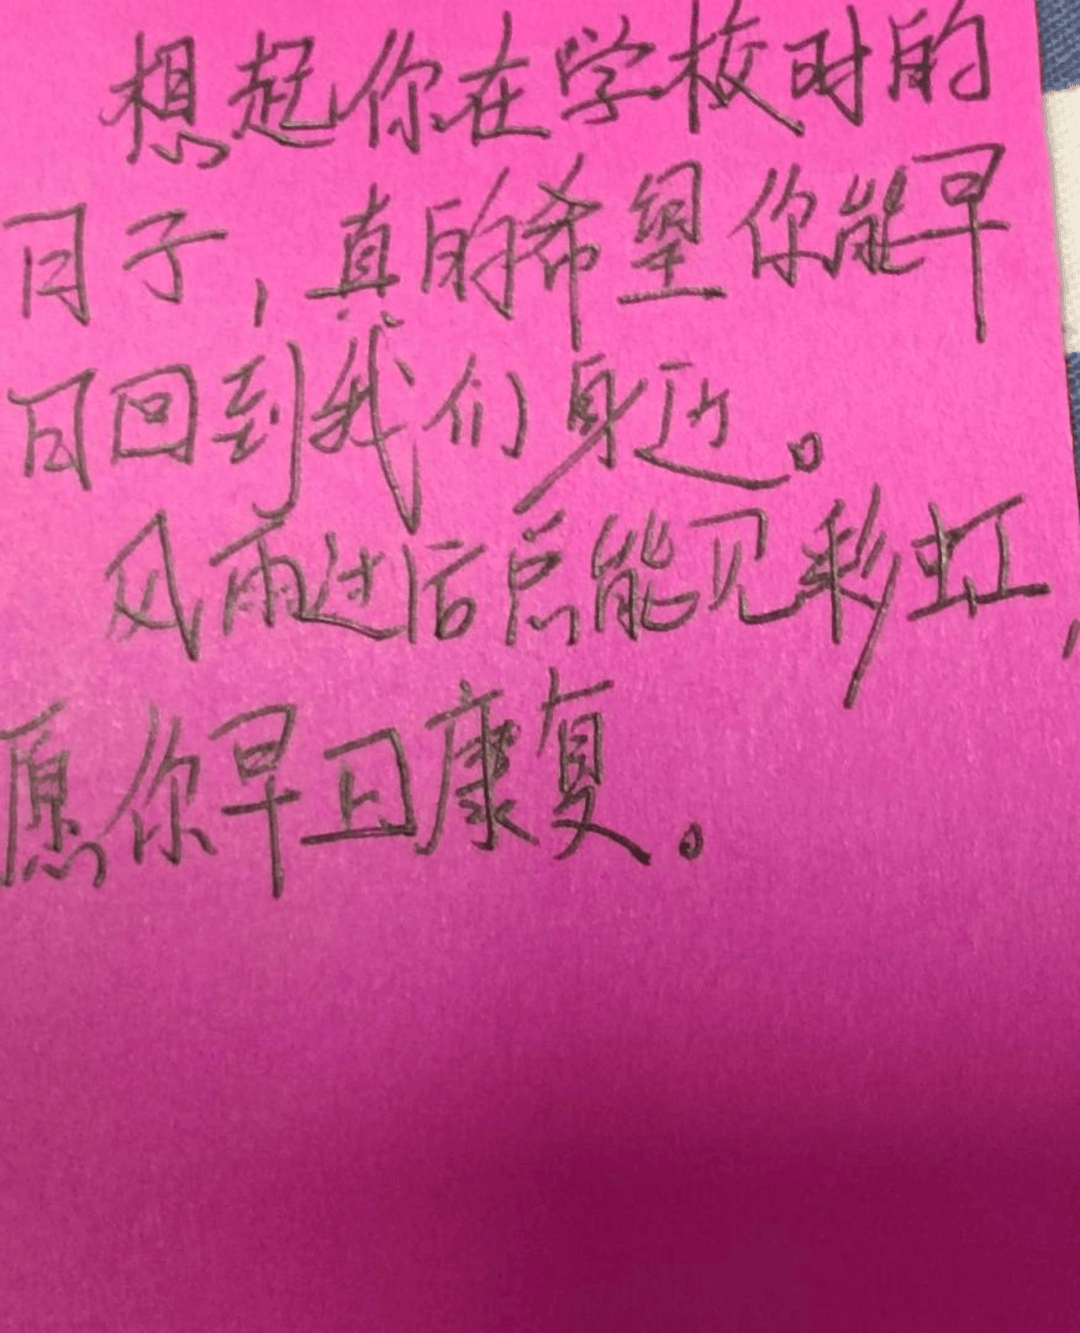 想起你在学校时的
日子，真的希望你能早
日回到我们身近。
风雨过后总能见彩虹，
愿你早日康复。